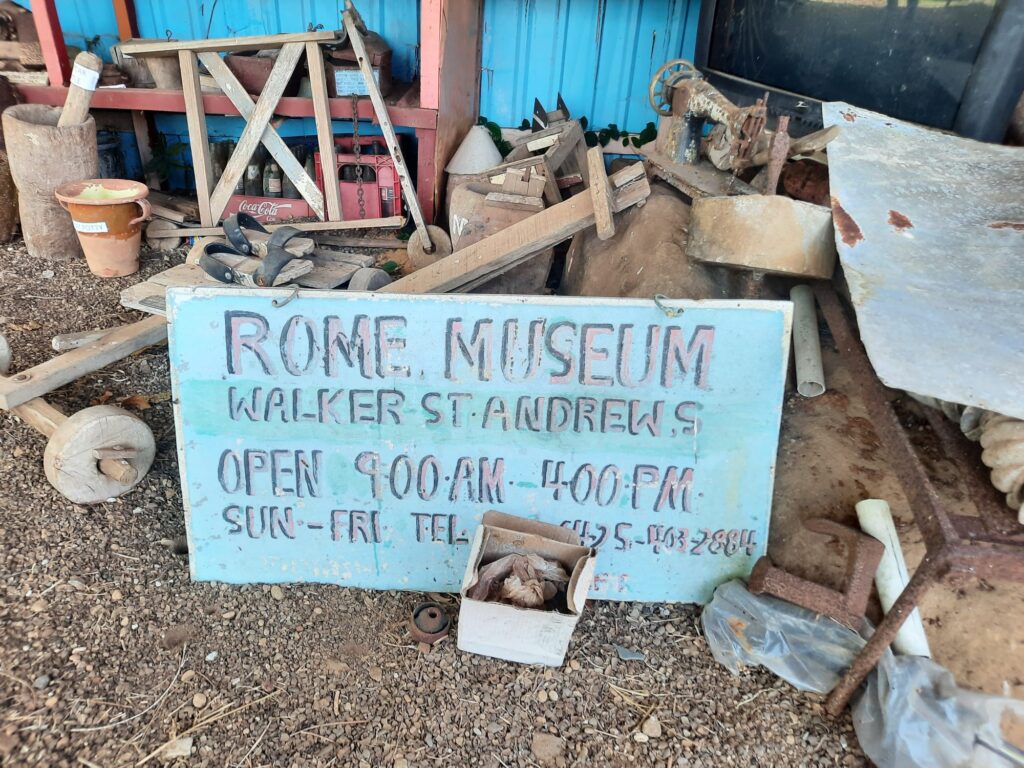 Coca-Cola
ROME MUSEUM
WALKER ST. ANDREW,S
OPEN 9.00.AM. 4.00.PM.
SUN.-FRI. TEL- 425.-403-2884